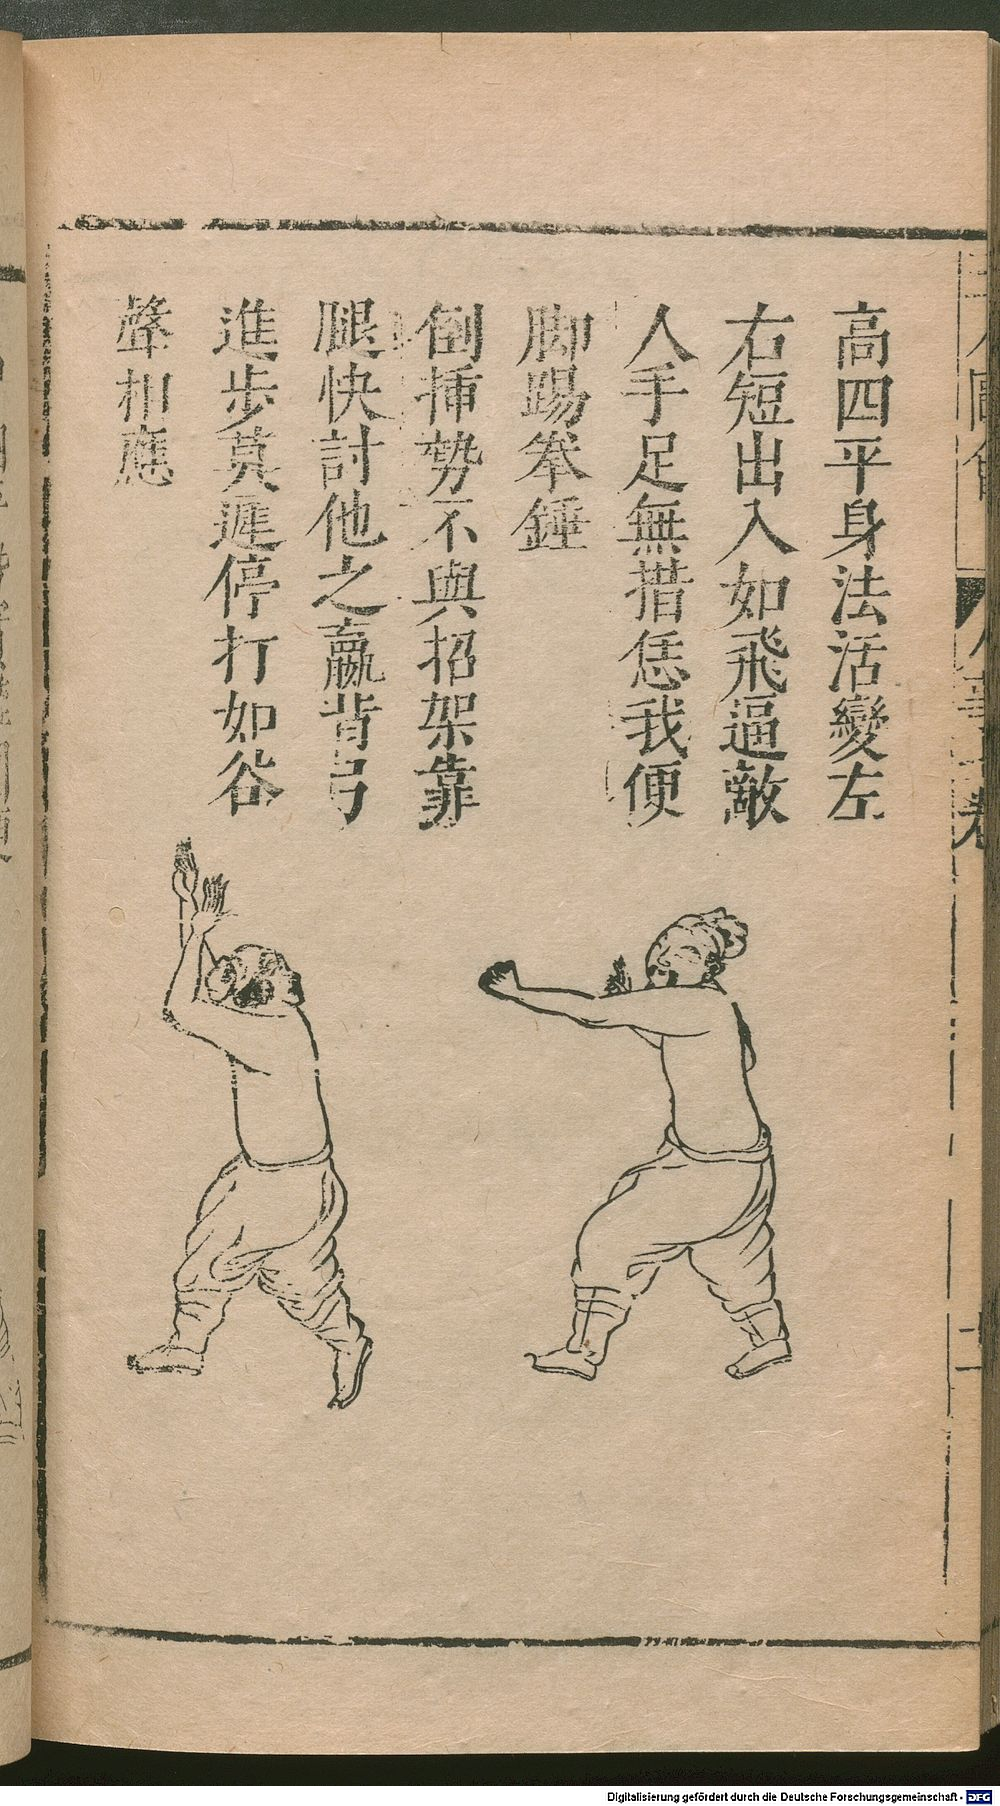 高四平身法活變左
右短出入如飛逼敵
人手足無措恁我便
脚踢拳錘
倒揷勢不與招架靠
腿快討他之贏背弓
進步莫遲停打如谷
聲相應
Digitalisierung gefördert durch die Deutsche Forschungsgemeinschaft - DFG